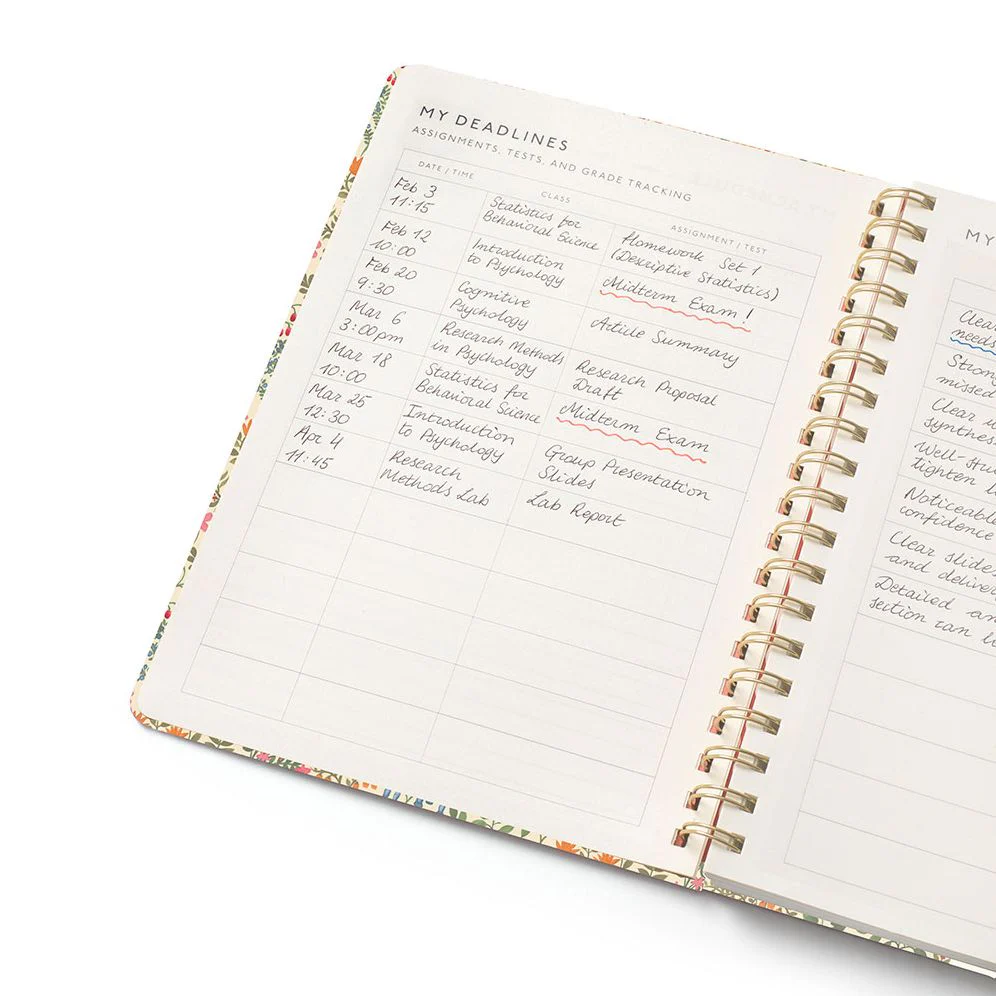 MY DEADLINES
ASSIGNMENTS, TESTS, AND GRADE TRACKING
DATE / TIME
CLASS
ASSIGNMENT / TEST
Feb 3
11:15
Statistics for
Behavioral Science
Homework Set 1
(Descriptive Statistics)
Feb 12
10:00
Introduction
to Psychology
Midterm Exam!
Feb 20
9:30
Cognitive
Psychology
Article Summary
Mar 6
3:00pm
Research Methods
in Psychology
Research Proposal
Draft
Mar 18
10:00
Statistics for
Behavioral Science
Midterm Exam
Mar 25
12:30
Introduction
to Psychology
Group Presentation
Slides
Apr 4
11:45
Research
Methods Lab
Lab Report
MY
Clear
needs
Strong
missed
Clear
synthes
Well-stru
tighten
Noticeable
confidence
Clear slides
and delivery
Detailed an
section can